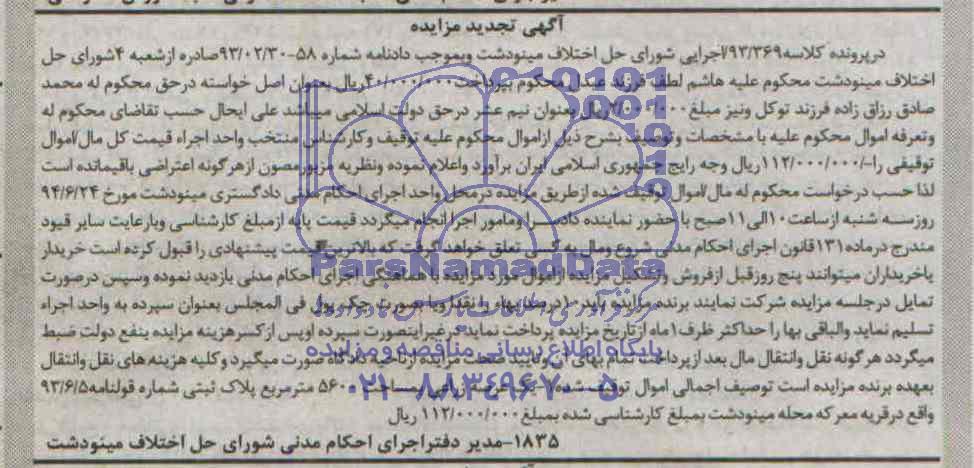 آگهی تجدید مزایده
درپرونده کلاسه ۹۳/۳۶۹اجرایی شورای حل اختلاف مینودشت وبموجب دادنامه شماره ۵۸-۹۳/۰۲/۳۰صادره ازشعبه ۴شورای حل
اختلاف مینودشت محکوم علیه هاشم لطفی فرزند محکوم بپرداخت ریال بعنوان اصل خواسته درحق محکوم له محمد
صادق رزاق زاده فرزند توکل ونیز مبلغ ریال بعنوان نیم عشر درحق دولت اسلامی میباشد علی ایحال حسب تقاضای محکوم له
وتعرفه اموال محکوم علیه با مشخصات وتوصیف بشرح ذیل ازاموال محکوم علیه توقیف وکارشناس منتخب واحد اجراء قیمت کل مال/اموال
توقیفی را-/۱۱۲/۰۰۰/۰۰۰ریال وجه رایج جمهوری اسلامی ایران برآورد واعلام نموده ونظریه مزبورمصون ازهرگونه اعتراضی باقیمانده است
لذا حسب درخواست محکوم له مال/اموال توقیف شده ازطریق مزایده درمحل واحد اجرای احکام مدنی دادگستری مینودشت مورخ ۹۴/۶/۲۴
روزسه شنبه ازساعت۱۰الی۱۱صبح باحضور نماینده دادسرا ومامور اجرا انجام میگردد قیمت پایه ازمبلغ کارشناسی وبارعایت سایر قیود
مندرج درماده۱۳۱قانون اجرای احکام مدنی شروع ومال به کسی تعلق خواهدگرفت که بالاترین قیمت پیشنهادی را قبول کرده است خریدار
یاخریداران میتوانند پنج روزقبل ازفروش وتشکیل مزایده ازاموال مورد مزایده با هماهنگی اجرای احکام مدنی بازدید نموده وسپس درصورت
تمایل درجلسه مزایده شرکت نمایند برنده مزایده باید۱۰درصدبهاء را نقدا وبصورت چک پول فی المجلس بعنوان سپرده به واحد اجراء
تسلیم نماید والباقی بها را حداکثر ظرف۱ماه ازتاریخ مزایده پرداخت نماید درغیراینصورت سپرده اوپس ازکسرهزینه مزایده بنفع دولت ضبط
میگردد هرگونه نقل وانتقال مال بعد ازپرداخت تمام بهای آن وتایید صحت مزایده ازناحیه دادگاه صورت میگیرد وکلیه هزینه های نقل وانتقال
بعهده برنده مزایده است توصیف اجمالی اموال توقیف شده یک عرصه زمین بمساحت ۵۶۰ مترمربع پلاک ثبتی شماره قولنامه۹۳/۶/۵
واقع درقریه معرکه محله مینودشت بمبلغ کارشناسی شده بمبلغ۱۱۲/۰۰۰/۰۰۰ ریال
۱۸۳۵-مدیر دفتراجرای احکام مدنی شورای حل اختلاف مینودشت
ParsNamadData
پایگاه اطلاع رسانی مناقصه و مزایده
۰۲۱-۸۸۳۴۹۶۷۰-۵